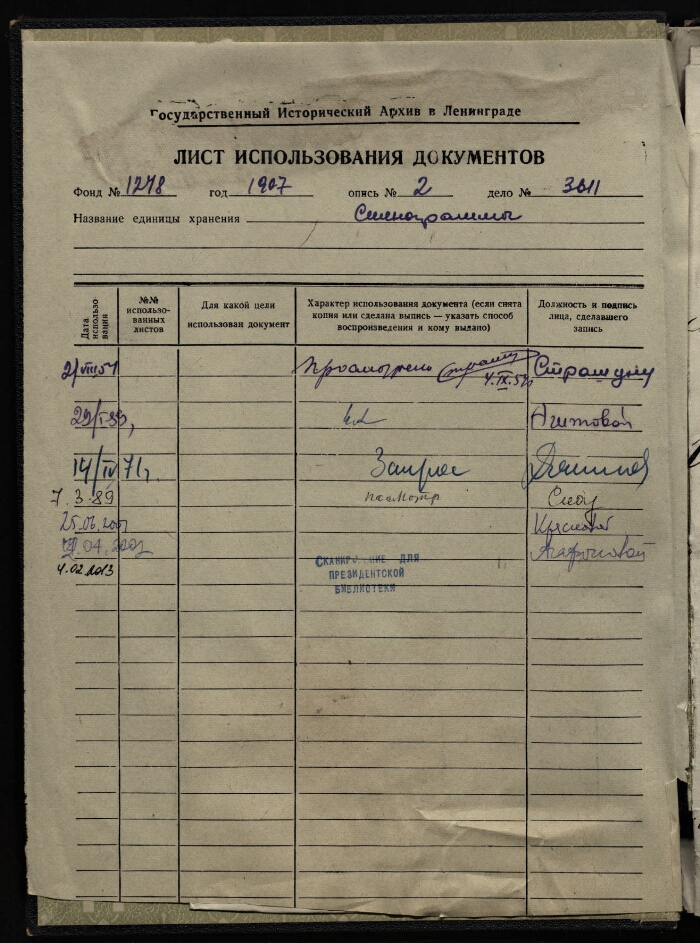 Государственный Исторический Архив в Ленинграде
ЛИСТ ИСПОЛЬЗОВАНИЯ ДОКУМЕНТОВ
Фонд № 1278 год 1907 опись № 2 дело № 3611
Название единицы хранения Стенограммы
Дата использования
№№ использованных листов
Для какой цели использован документ
Характер использования документа (если снята копия или сделана выпись — указать способ воспроизведения и кому выдано)
Должность и подпись лица, сделавшего запись
Просмотрено 4.IX.51 Страшуну
Агитовой
14/IV 71г. Запрос
7.3.89 посмотр
25.06.2001
04.2002 Агафоновой
4.02.2013
СКАНИРОВАНИЕ ДЛЯ
ПРЕЗИДЕНТСКОЙ
БИБЛИОТЕКИ